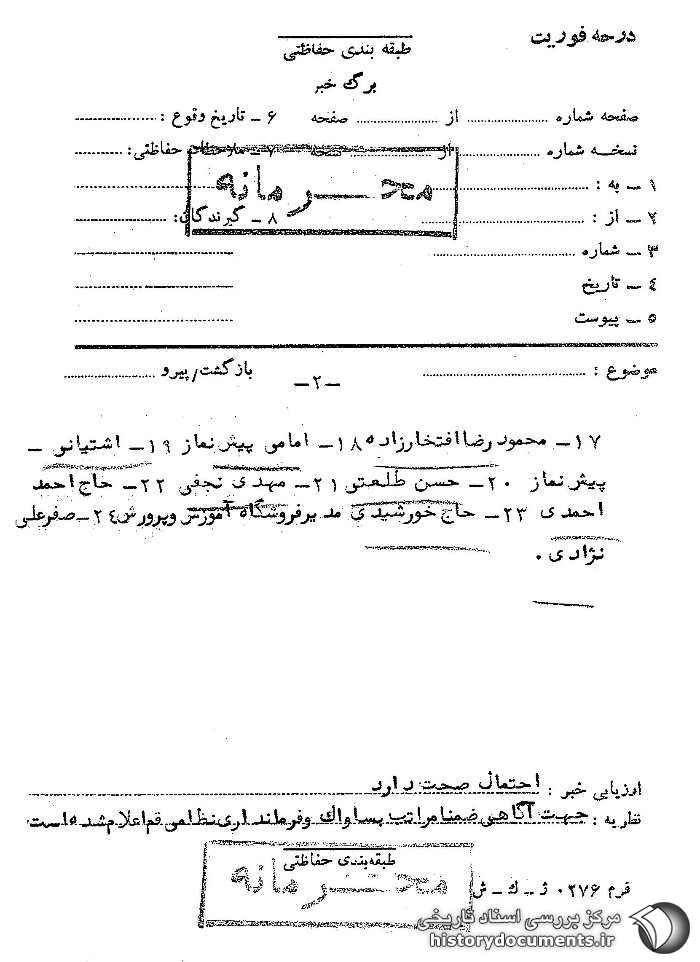 درجه فوریت
طبقه بندی حفاظتی
برگ خبر
صفحه شماره .......... از .......... صفحه
۶ ـ تاریخ وقوع : ..........
نسخه شماره .......... از .......... نسخه
۷ ـ ملاحظات حفاظتی: ..........
محرمانه
۱ ـ به : ..........
۲ ـ از : ..........
۸ ـ گیرندگان: ..........
۳ ـ شماره ..........
۴ ـ تاریخ
۵ ـ پیوست
موضوع : ..........
بازگشت/پیرو ..........
ـ۲ـ
۱۷ـ محمود رضا افتخارزاده ۱۸ـ امامی پیش نماز ۱۹ـ اشتیانی ـ
پیش نماز ۲۰ـ حسن طلعتی ۲۱ـ مهدی نجفی ۲۲ـ حاج احمد
احمدی ۲۳ـ حاج خورشیدی مدیرفروشگاه آموزش وپرورش ۲۴ـ صفرعلی
نژادی .
ارزیابی خبر : احتمال صحت دارد
نظریه : جهت آگاهی ضمنا مراتب بساواک وفرمانداری نظامی قم اعلام شده است
طبقه‌بندی حفاظتی
محرمانه
فرم ۰۲۷۶ ژ ـ ک ـ ش
مرکز بررسی اسناد تاریخی
historydocuments.ir